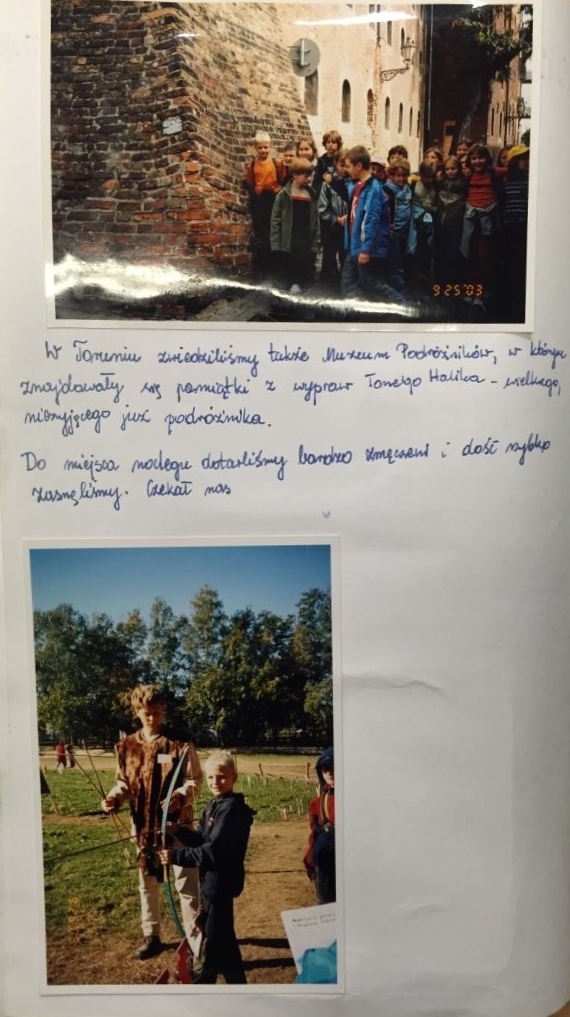 t
9 25 '03
W Toruniu zwiedziliśmy także Muzeum Podróżników, w którym
znajdowały się pamiątki z wypraw Toniego Halika - wielkiego,
nieżyjącego już podróżnika.
Do miejsca noclegu dotarliśmy bardzo zmęczeni i dość szybko
zasnęliśmy. Czekał nas